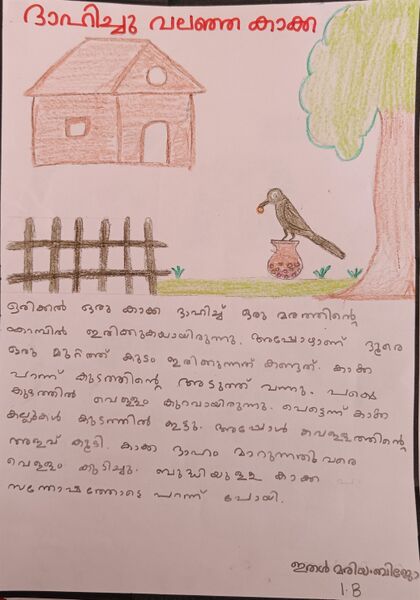 ദാഹിച്ചു വലഞ്ഞ കാക്ക
ഒരിക്കൽ ഒരു കാക്ക ദാഹിച്ച് ഒരു മരത്തിന്റെ
കൊമ്പിൽ ഇരിക്കുകയായിരുന്നു. അപ്പോഴാണ് ദൂരെ
ഒരു മുറ്റത്ത് കുടം ഇരിക്കുന്നത് കണ്ടത്. കാക്ക
പറന്ന് കുടത്തിന്റെ അടുത്ത് വന്നു. പക്ഷെ
കുടത്തിൽ വെള്ളം കുറവായിരുന്നു. പെട്ടെന്ന് കാക്ക
കല്ലുകൾ കുടത്തിൽ ഇട്ടു. അപ്പോൾ വെള്ളത്തിന്റെ
അളവ് കൂടി. കാക്ക ദാഹം മാറുന്നതു വരെ
വെള്ളം കുടിച്ചു. ബുദ്ധിയുള്ള കാക്ക
സന്തോഷത്തോടെ പറന്ന് പോയി.
ഇതൾ മരിയം ബിജോ
1.B